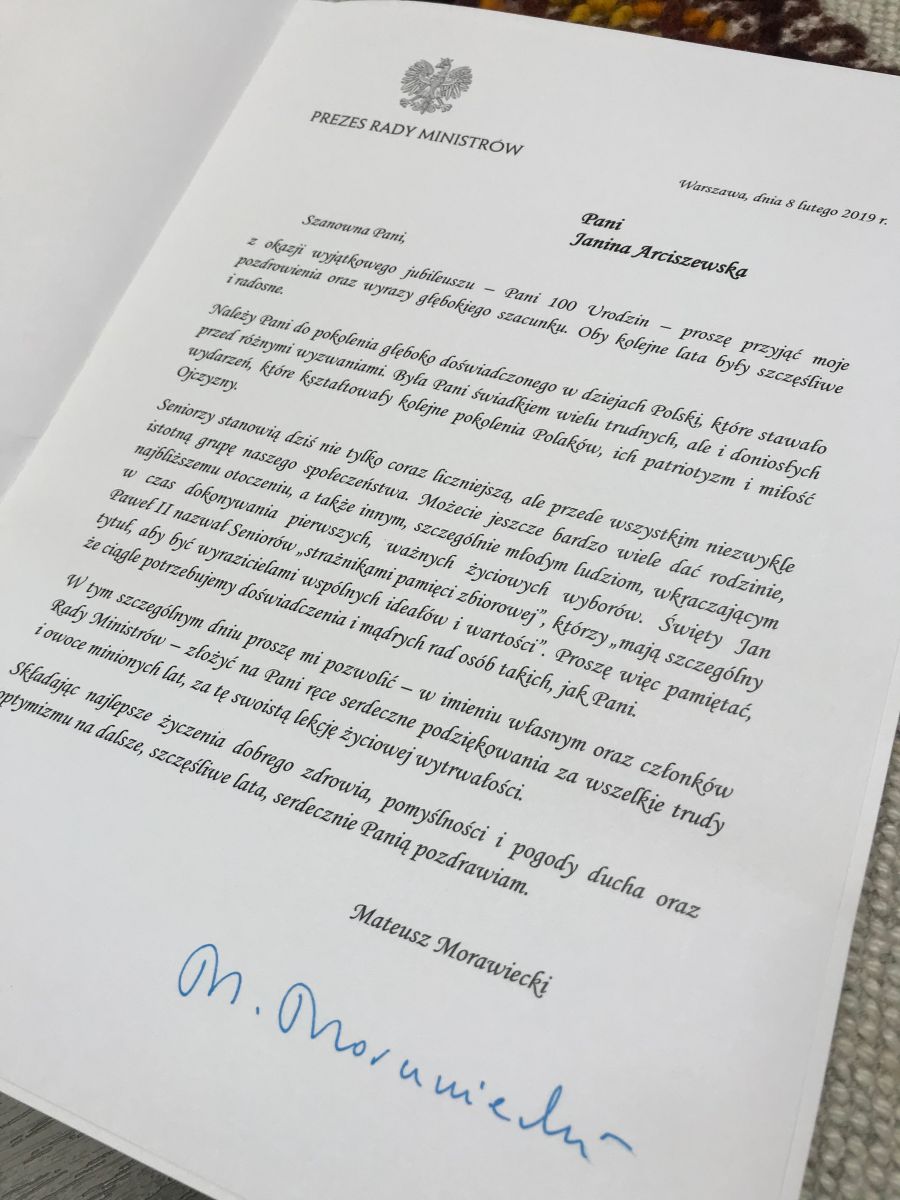 PREZES RADY MINISTRÓW
Warszawa, dnia 8 lutego 2019 r.
Pani
Janina Arciszewska
Szanowna Pani,
z okazji wyjątkowego jubileuszu – Pani 100 Urodzin – proszę przyjąć moje
pozdrowienia oraz wyrazy głębokiego szacunku. Oby kolejne lata były szczęśliwe
i radosne.
Należy Pani do pokolenia głęboko doświadczonego w dziejach Polski, które stawało
przed różnymi wyzwaniami. Była Pani świadkiem wielu trudnych, ale i doniosłych
wydarzeń, które kształtowały kolejne pokolenia Polaków, ich patriotyzm i miłość
Ojczyzny.
Seniorzy stanowią dziś nie tylko coraz liczniejszą, ale przede wszystkim niezwykle
istotną grupę naszego społeczeństwa. Możecie jeszcze bardzo wiele dać rodzinie,
najbliższemu otoczeniu, a także innym, szczególnie młodym ludziom, wkraczającym
w czas dokonywania pierwszych, ważnych życiowych wyborów. Święty Jan
Paweł II nazwał Seniorów „strażnikami pamięci zbiorowej”, którzy „mają szczególny
tytuł, aby być wyrazicielami wspólnych ideałów i wartości”. Proszę więc pamiętać,
że ciągle potrzebujemy doświadczenia i mądrych rad osób takich, jak Pani.
W tym szczególnym dniu proszę mi pozwolić – w imieniu własnym oraz członków
Rady Ministrów – złożyć na Pani ręce serdeczne podziękowania za wszelkie trudy
i owoce minionych lat, za tę swoistą lekcję życiowej wytrwałości.
Składając najlepsze życzenia dobrego zdrowia, pomyślności i pogody ducha oraz
optymizmu na dalsze, szczęśliwe lata, serdecznie Panią pozdrawiam.
Mateusz Morawiecki
M. Morawiecki